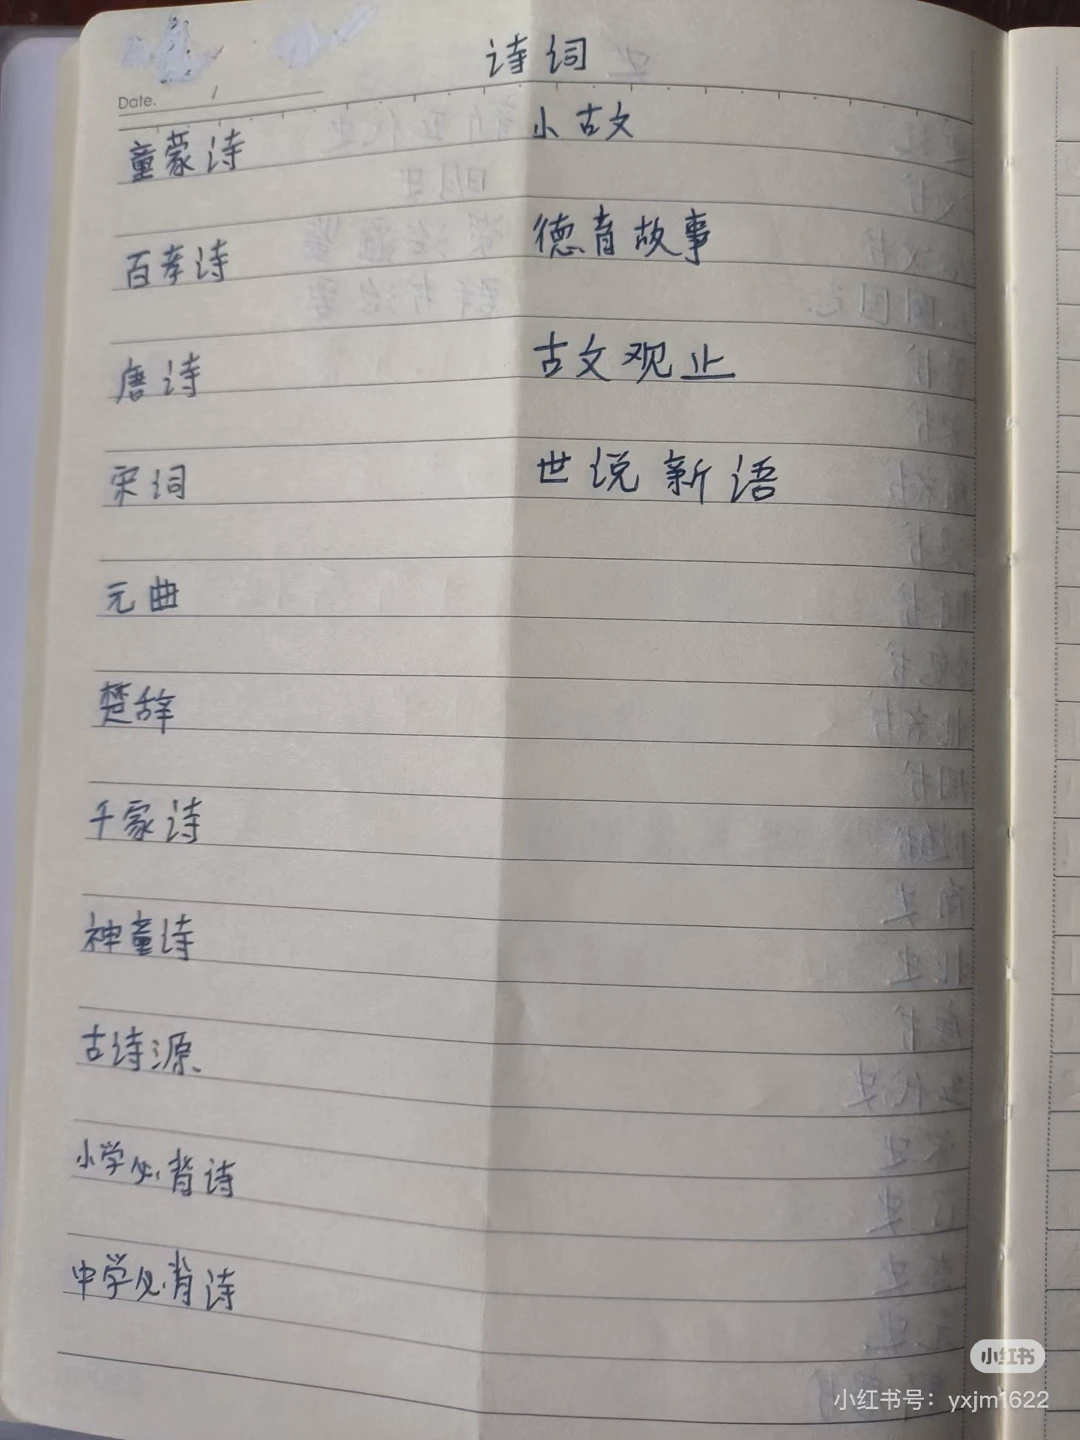 诗词
Date.
童蒙诗
百孝诗
唐诗
宋词
元曲
楚辞
千家诗
神童诗
古诗源
小学必背诗
中学必背诗
小古文
德育故事
古文观止
世说新语
小红书
小红书号：yxjm1622